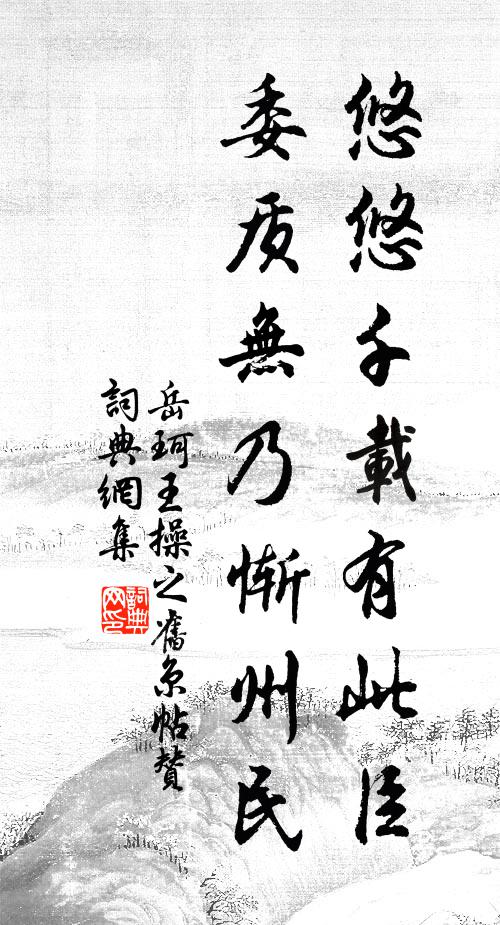 悠悠千載有此臣
委质無乃慚州民
岳珂王操之舊京帖贊
詞典網集
詞典網印